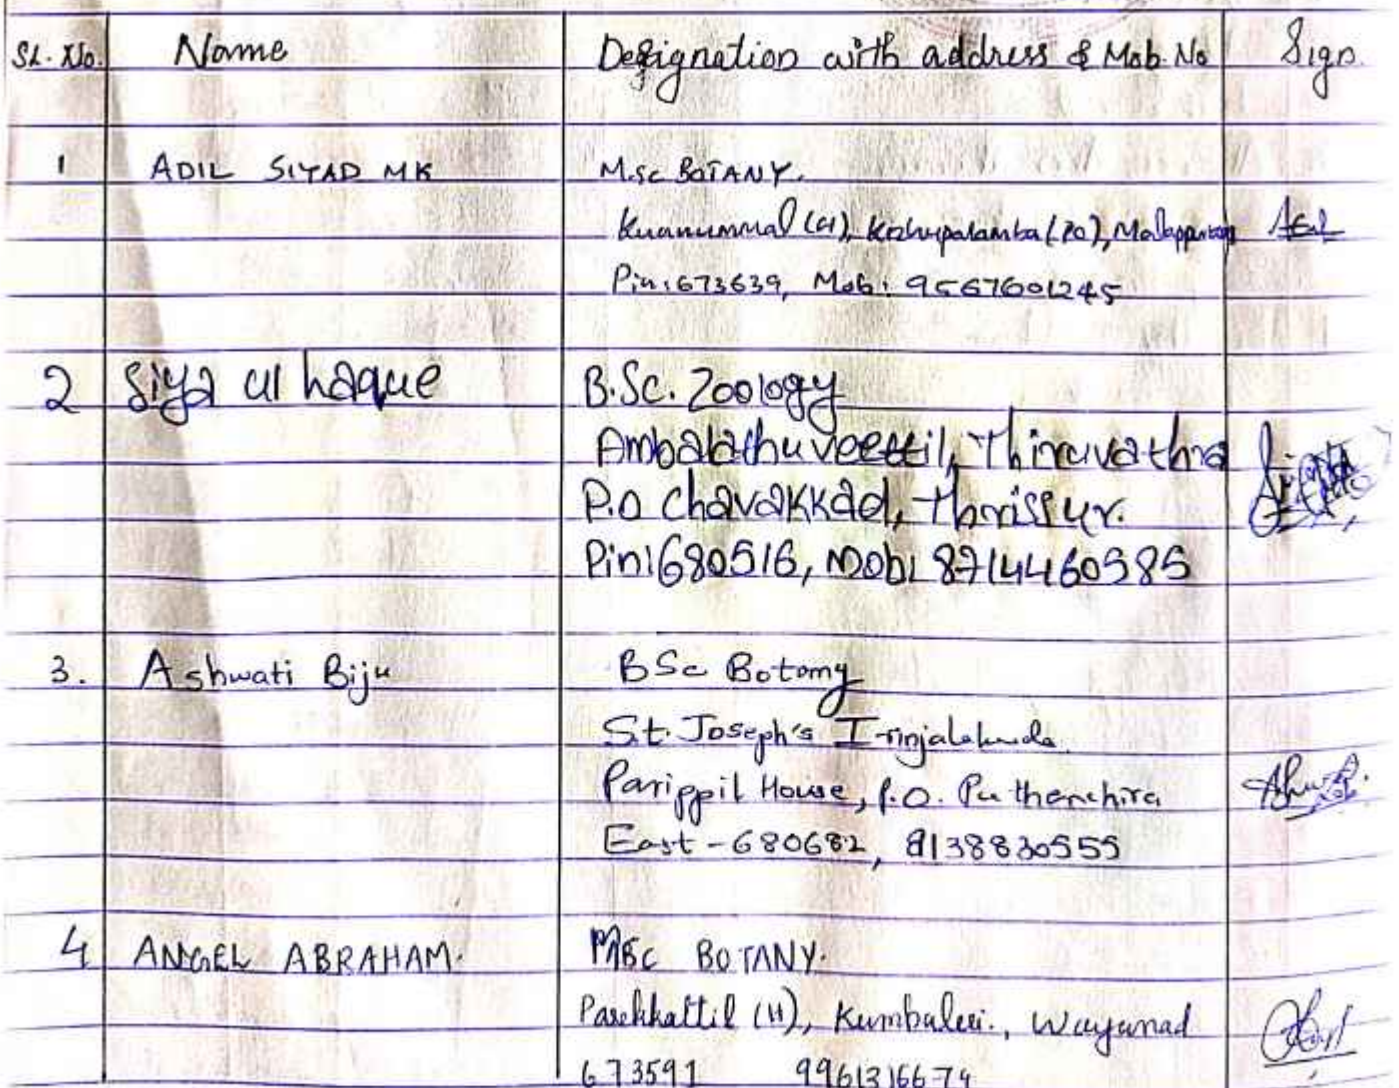 SL. No. Name Designation with address & Mob. No Sign.
1 ADIL SIYAD MK M.Sc BOTANY.
Kuanummal (H), Kozhuparamba (PO), Malappuram
Pin: 673639, Mob: 9567601245
2 Siya ul haque B.Sc. Zoology
Ambalathuveettil, Thiruvathra
P.O Chavakkad, Thrissur.
Pin: 680516, Mob: 8714460585
3. Ashwati Biju BSc Botany
St. Joseph's Irinjalakuda
Parippil House, P.O. Puthenchira
East - 680682, 8138830555
4 ANGEL ABRAHAM. MSc BOTANY.
Parekkattil (H), Kumbaleri., Wayanad
673591 9961316674